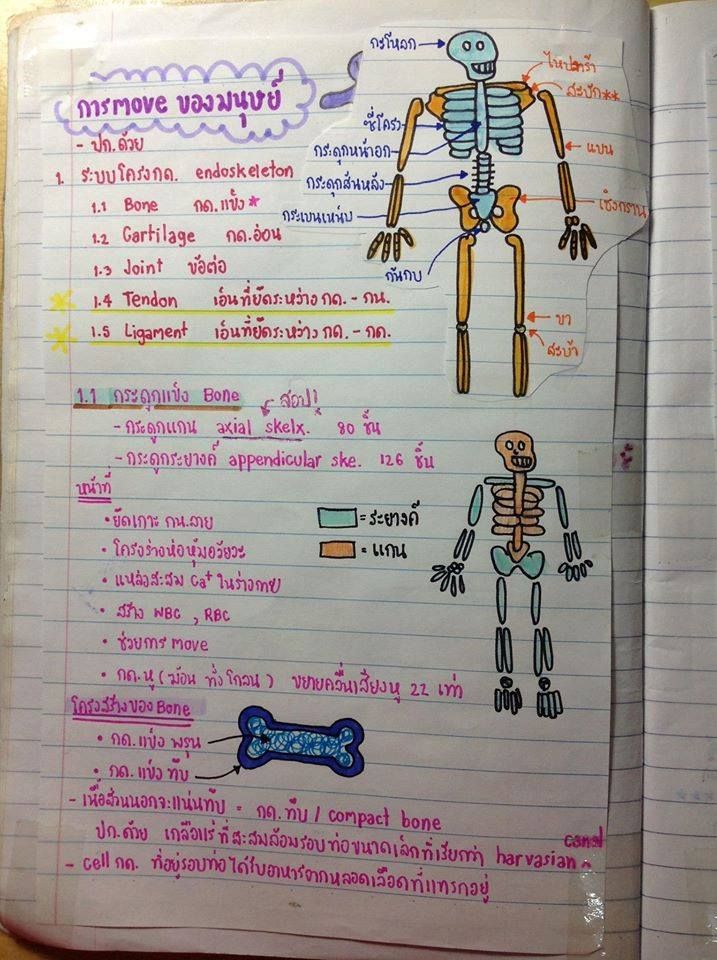 การmove ของมนุษย์
- ปก.ด้วย
1. ระบบโครงกด. endoskeleton
1.1 Bone กด.แข็ง*
1.2 Cartilage กด.อ่อน
1.3 Joint ข้อต่อ
1.4 Tendon เอ็นที่ยึดระหว่าง กด. - กน.
1.5 Ligament เอ็นที่ยึดระหว่าง กด. - กด.
กะโหลก
ไหปลาร้า
สะบัก**
ซี่โครง
กระดูกหน้าอก
แขน
กระดูกสันหลัง
กระเบนเหน็บ
เชิงกราน
ก้นกบ
ขา
สะบ้า
1.1 กระดูกแข็ง Bone
สอบ!
- กระดูกแกน axial skelx. 80 ชิ้น
- กระดูกระยางค์ appendicular ske. 126 ชิ้น
หน้าที่
• ยึดเกาะ กน.ลาย
• โครงร่างห่อหุ้มอวัยวะ
• แหล่งสะสม Ca+ ในร่างกาย
• สร้าง WBC , RBC
• ช่วยการ move
• กด.หู (ฆ้อน ทั่ง โกลน) ขยายคลื่นเสียงหู 22 เท่า
= ระยางค์
= แกน
โครงสร้างของ Bone
• กด.แข็ง พรุน
• กด.แข็ง ทึบ
- เนื้อส่วนนอกจะแน่นทึบ = กด.ทึบ / compact bone
ปก.ด้วย เกลือแร่ที่สะสมล้อมรอบท่อขนาดเล็กที่เรียกว่า harvasian canal
- cell กด. ที่อยู่รอบท่อได้รับอาหารจากหลอดเลือดที่แทรกอยู่